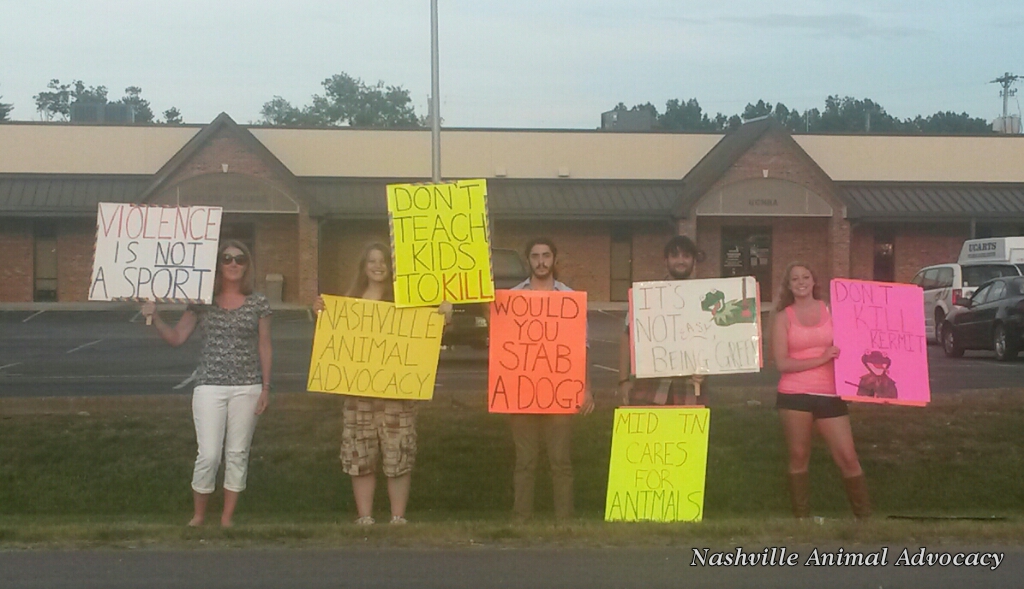 VIOLENCE
IS NOT
A SPORT
DON'T
TEACH
KIDS
TO KILL
NASHVILLE
ANIMAL
ADVOCACY
WOULD
YOU
STAB
A DOG?
IT'S
NOT EASY
BEING GREEN
MID TN
CARES
FOR
ANIMALS
DON'T
KILL
KERMIT
UCARTS
Nashville Animal Advocacy